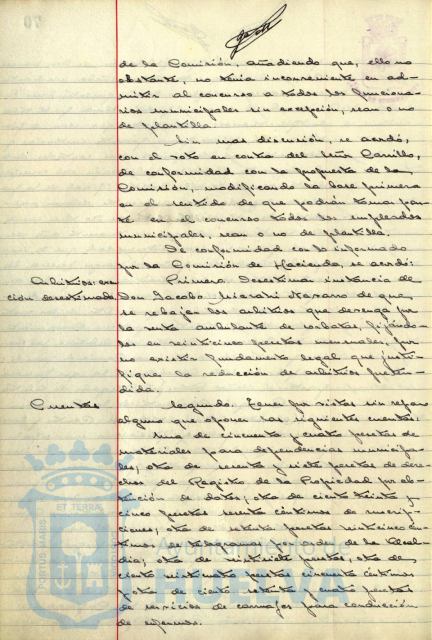 de la Comisión, añadiendo que, ello no
obstante, no tenía inconveniente en ad-
mitir al concurso a todos los funciona-
rios municipales sin excepción, sean o no
de plantilla.
Sin mas discusión, se acordó,
con el voto en contra del Señor Carrillo,
de conformidad con la propuesta de la
Comisión, modificando la base primera
en el sentido de que podrán tomar par-
te en el concurso todos los empleados
municipales, sean o no de plantilla.
De conformidad con lo informado
por la Comisión de Hacienda, se acordó:
Arbitrios: exen-
ción desestimada
Primero. Desestimar instancia de
Don Jacobo Navarro de que
se rebajen los arbitrios que devenga por
la venta ambulante de corbatas, fijándo-
los en veinticinco pesetas mensuales, por
no existir fundamento legal que justi-
fique la reducción de arbitrios preten-
dida.
Cuentas
Segundo. Tener por vistas sin reparo
alguno que oponer las siguientes cuentas:
Una de cincuenta y cuatro pesetas de
materiales para dependencias municipa-
les; otra de sesenta y siete pesetas de dere-
chos del Registro de la Propiedad por ob-
tención de datos; otra de ciento treinta y
cinco pesetas céntimos de suscrip-
ciones; otra de setenta pesetas veinticinco cén-
timos de telegramas por orden de la Alcal-
día; otra de veintisiete pesetas; otra de
ciento veinticuatro pesetas cincuenta céntimos
y otra de ciento setenta y cuatro pesetas
de servicios de carruajes para conducción
de enfermos.
PORTUS MARIS
ET TERRAE
Ayuntamiento de
HUELVA